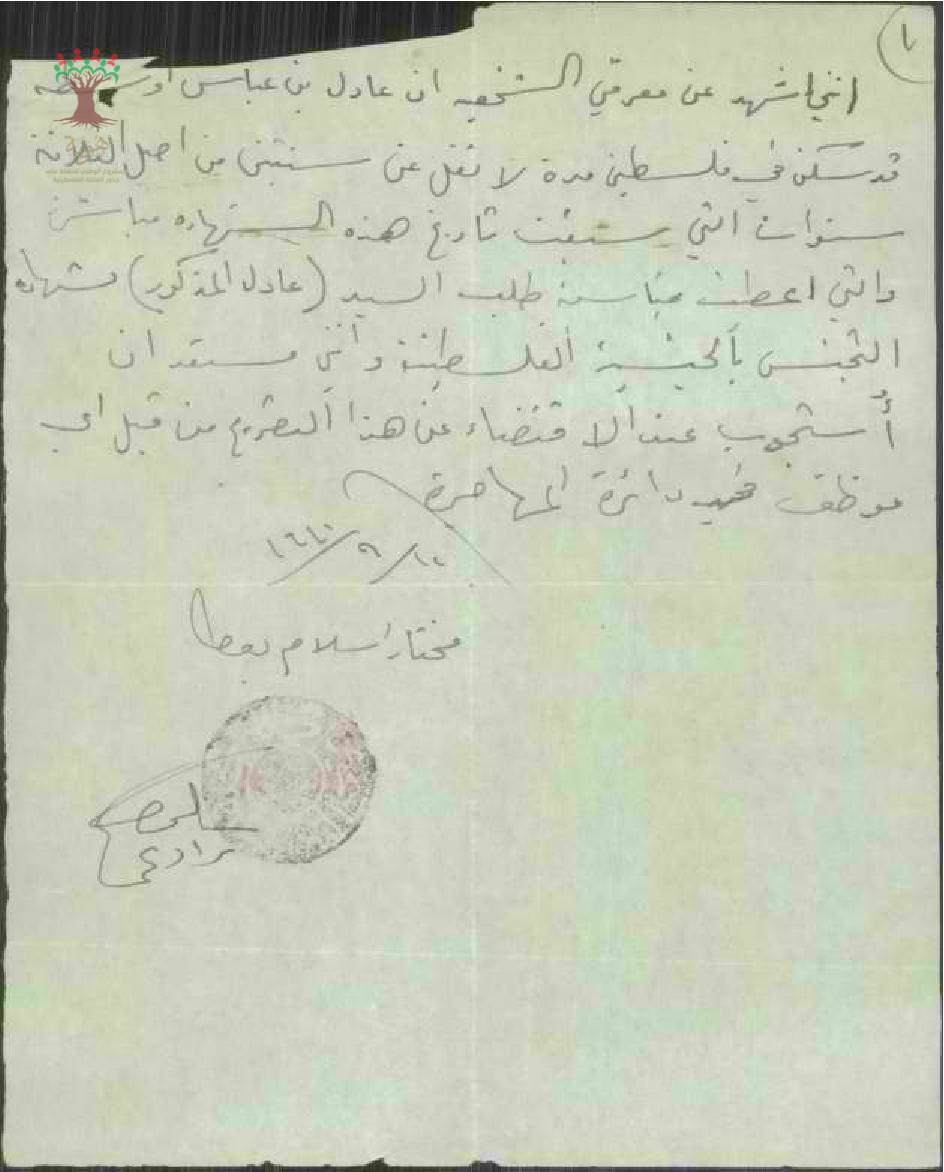 ١
انني اشهد عن معرفتي الشخصيه ان عادل بن عباس
قد سكن في فلسطين مدة لا تقل عن سنتين من اصل الثلاثة
سنوات التي سبقت تاريخ هذه الشهاده مباشرة
والتي اعطت مناسبة طلب السيد (عادل المذكور) شهاده
التجنس بالجنسية الفلسطينية وأنني مستعد ان
أُستجوب عند الاقتضاء عن هذا التصريح من قبل اي
موظف دائرة المهاجرة
مختار اسلام